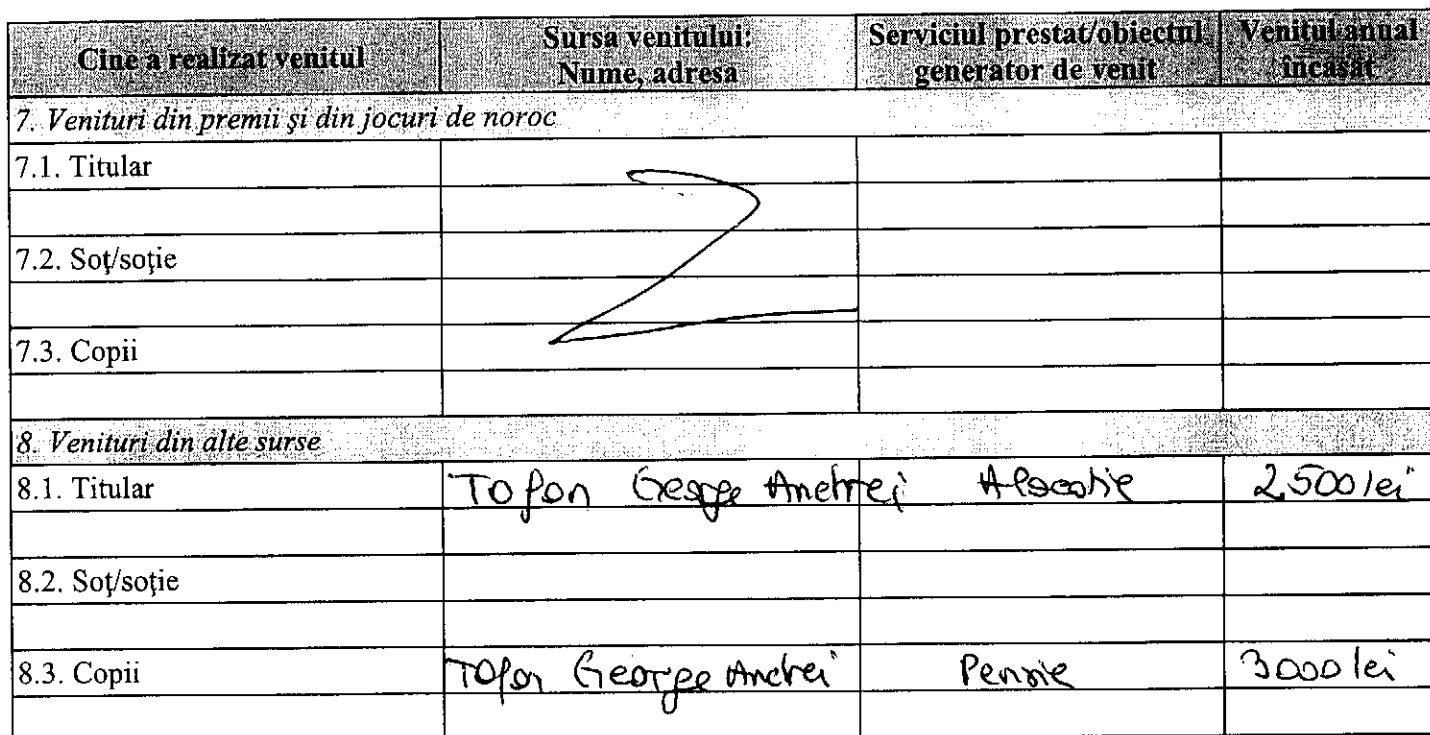 Cine a realizat venitul Sursa venitului: Nume, adresa Serviciul prestat/obiectul generator de venit Venitul anual încasat
7. Venituri din premii şi din jocuri de noroc
7.1. Titular
7.2. Soţ/soţie
7.3. Copii
8. Venituri din alte surse
8.1. Titular Tofon George Andrei Alocatie 2,500 lei
8.2. Soţ/soţie
8.3. Copii Tofon George Andrei Pensie 3000 lei